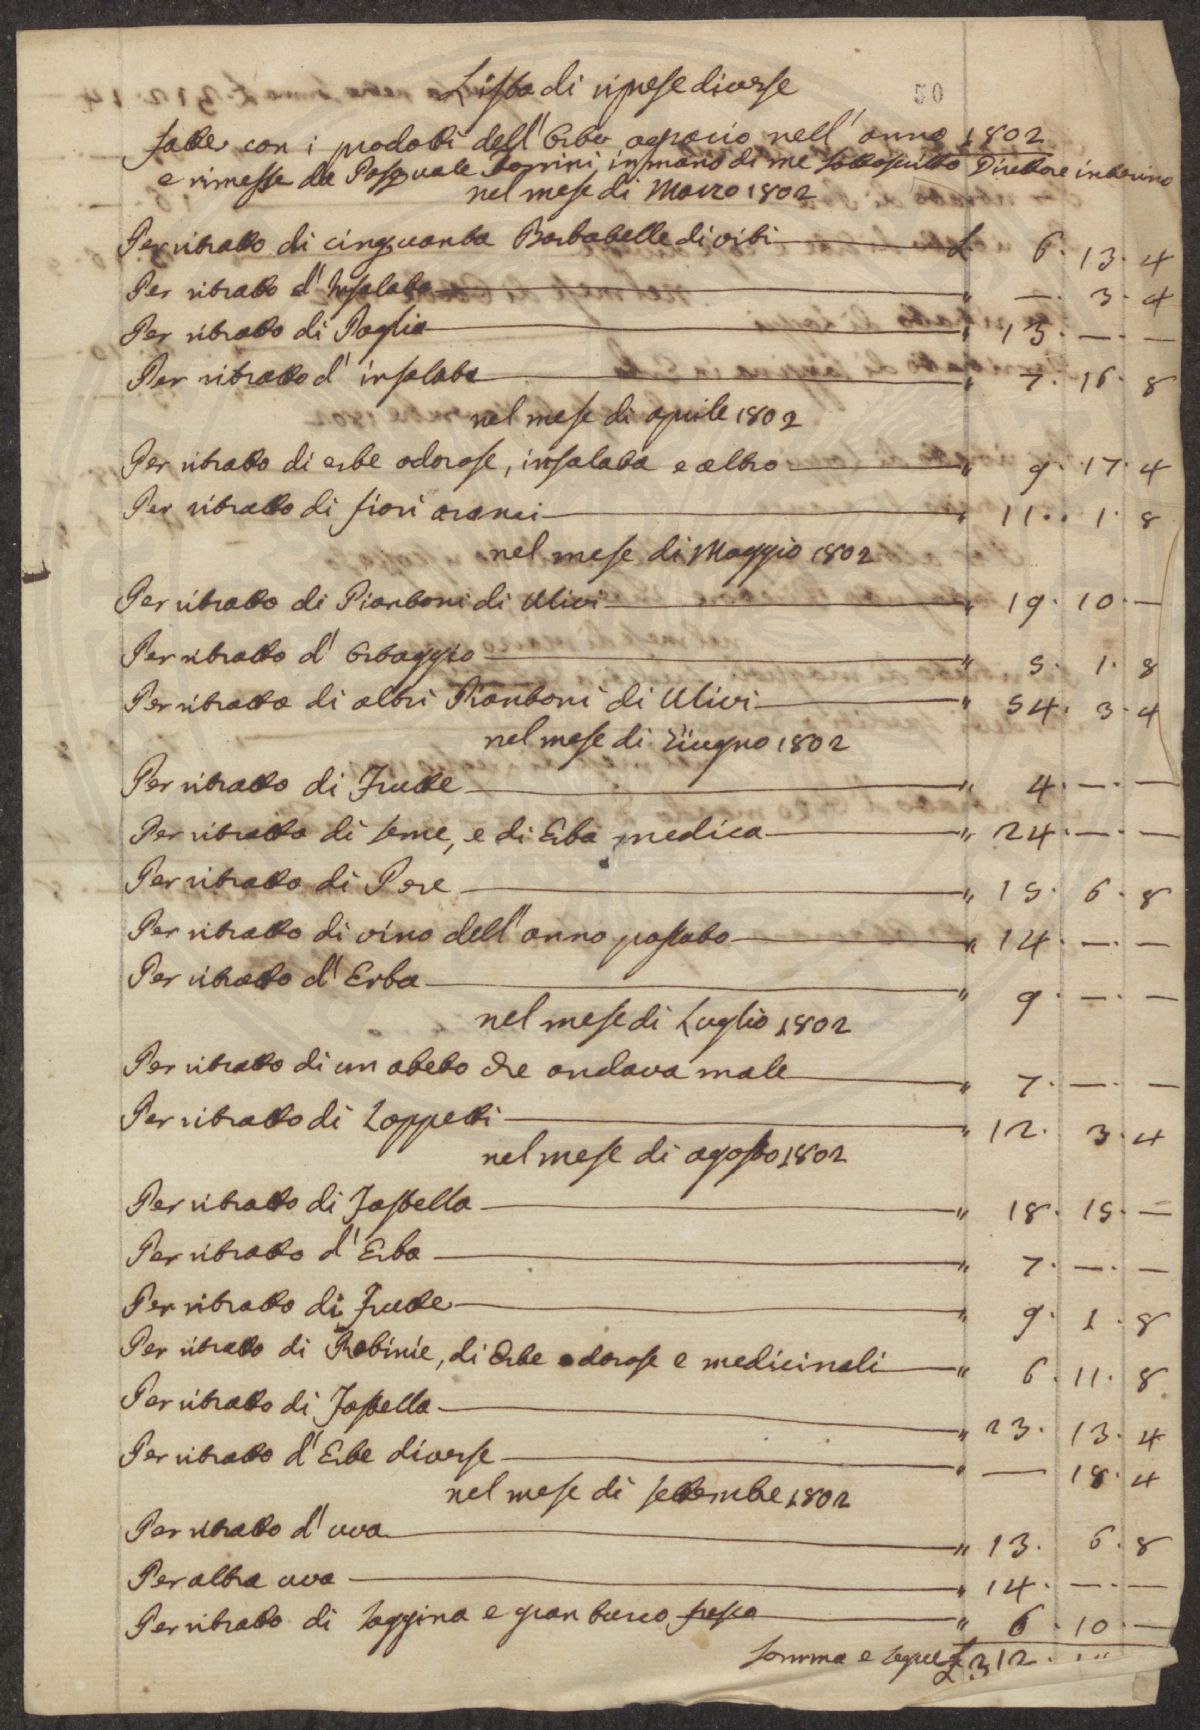 Lista di riprese diverse
50
fatte con i prodotti dell'Orto agrario nell'anno 1802
e rimesse da Pasquale Tornini in mano di me sottoscritto Direttore interino
nel mese di Marzo 1802
Per ritratto di cinquanta Barbatelle di viti £ 6. 13. 4
Per ritratto d'Insalata " —. 3. 4
Per ritratto di Paglia " 13. —. —
Per ritratto d'insalata " 7. 16. 8
nel mese di aprile 1802
Per ritratto di erbe odorose, insalata e altro " 9. 17. 4
Per ritratto di fiori aranci " 11. 1. 8
nel mese di Maggio 1802
Per ritratto di Piantoni di Ulivi " 19. 10. —
Per ritratto d'Erbaggio " 5. 1. 8
Per ritratto di altri Piantoni di Ulivi " 54. 3. 4
nel mese di Giugno 1802
Per ritratto di Frutte " 4. —. —
Per ritratto di seme, e di Erba medica " 24. —. —
Per ritratto di Pere " 15. 6. 8
Per ritratto di vino dell'anno passato " 14. —. —
Per ritratto d'Erba " 9. —. —
nel mese di Luglio 1802
Per ritratto di un abeto che andava male " 7. —. —
Per ritratto di Loppetti " 12. 3. 4
nel mese di agosto 1802
Per ritratto di Fastella " 18. 15. —
Per ritratto d'Erba " 7. —. —
Per ritratto di Frutte " 9. 1. 8
Per ritratto di Robinie, di Erbe odorose e medicinali " 6. 11. 8
Per ritratto di Fastella " 23. 13. 4
Per ritratto d'Erbe diverse " — 18. 4
nel mese di settembre 1802
Per ritratto d'uva " 13. 6. 8
Per altra uva " 14. —. —
Per ritratto di saggina e gran turco fresco " 6. 10. —
Somma e segue £ 312.